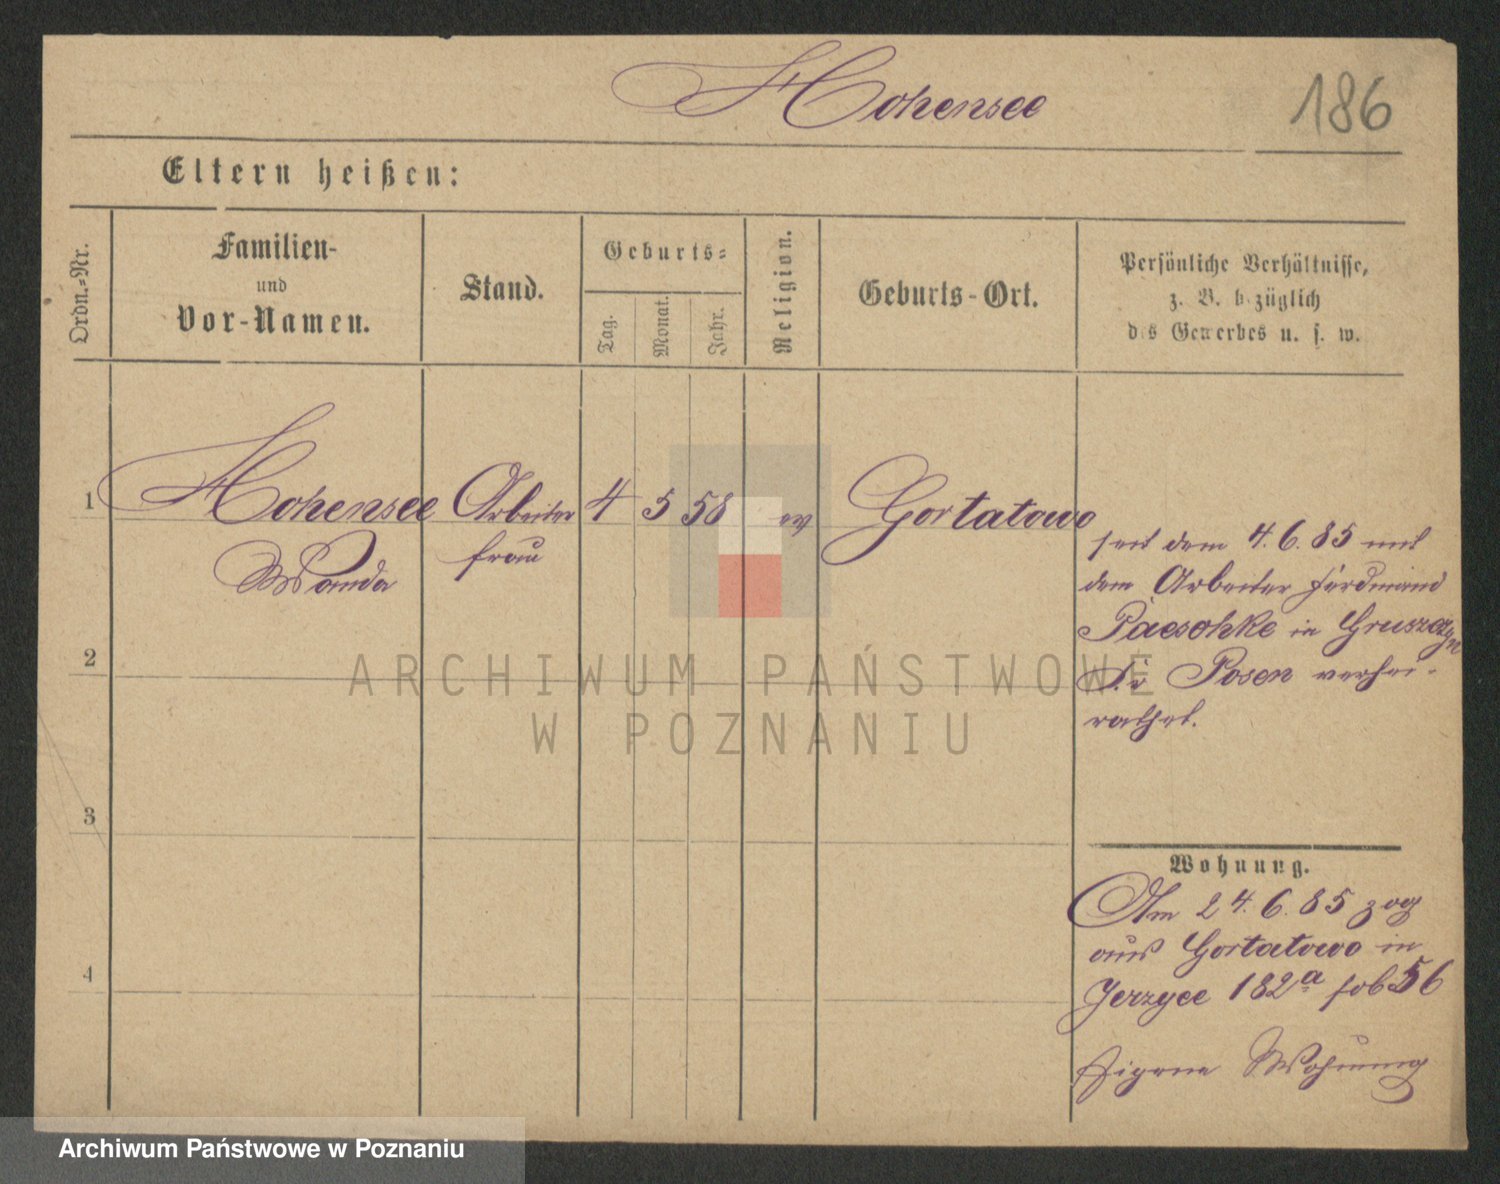 Hohensee
186
Eltern heißen:
Ordn.-Nr.
Familien-
und
Vor-Namen.
Stand.
Geburts-
Tag.
Monat.
Jahr.
Religion.
Geburts-Ort.
Persönliche Verhältnisse,
z. B. bezüglich
des Gewerbes u. s. w.
1
Hohensee Arbeiter 4 5 58 ev Gortatowo
Wanda frau
seit dem 4. 6. 85 mit
dem Arbeiter Ferdinand
Paeschke in Gruszczyn
Kr Posen verhei-
rathet.
2
3
4
Wohnung.
Am 24. 6. 85 zog
aus Gortatowo in
Jerzyce 182a 56
Eigene Wohnung
ARCHIWUM PAŃSTWOWE
W POZNANIU
Archiwum Państwowe w Poznaniu